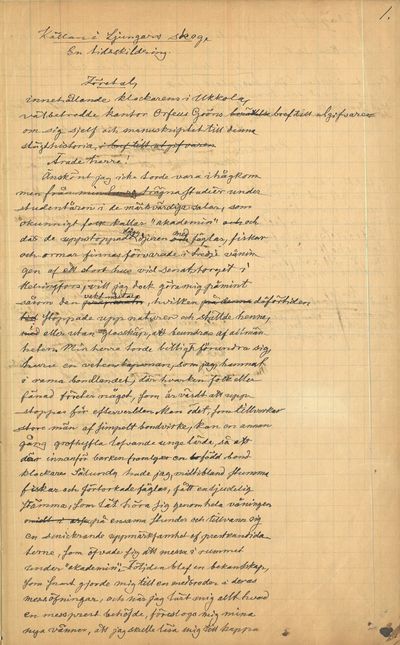 1.
Källan i Ljungars skog,
En tidsskildring.
Företal,
innehållande klockarens i Ukkola,
välbetrodde kantor Orfeus Gröns bref till utgifvaren
om sig sjelf och manuskriptet till denna
slägthistoria,
Ärade herre!
Änskönt jag icke torde vara ihågkom
men från mina trägna studier under
studentåren i de märkvärdiga salar, som
okunnigt folk kallar "akademin" och
der de uppstoppade djuren med foglar, fiskar
och ormar finnas förvarade i tredje vånin
gen af ett stort hus vid senatstorget i
Helsingfors, vill jag dock göra mig påmint
såsom den vaktmästare, hvilken på den tiden
stoppade upp naturen och ställde henne,
med eller utan glasskåp, att beundras af allmän
heten. Min herre torde billigt förundra sig,
huru en vetenskapsman, som jag, hamnat
i rama bondlandet, der hvarken folk eller
fänad företer något, som är värdt att upp
stoppas för efterverlden. Men ödet, som tillverkar
store män af simpelt bondvirke, kan en annan
gång grafhyfla lofvande unge lärde, så att
innanför barken framtger en bond
klockare. Sålunda hade jag, midt ibland stumma
fiskar och förtorkade foglar, fått en ljudelig
stämma, som lät höra sig genom hela våningen
på ensamma stunder och tillvann sig
en smickrande uppmärksamhet af prestkandida
terne, som öfvade sig att messa i rummet
under "akademin". Följden blef en bekantskap,
som snart gjorde mig till en medbroder i deras
messöfningar, och när jag lärt mig allt hvad
en messprest behöfde, föreslogo mig mina
nya vänner, att jag skulle läsa mig till kappa